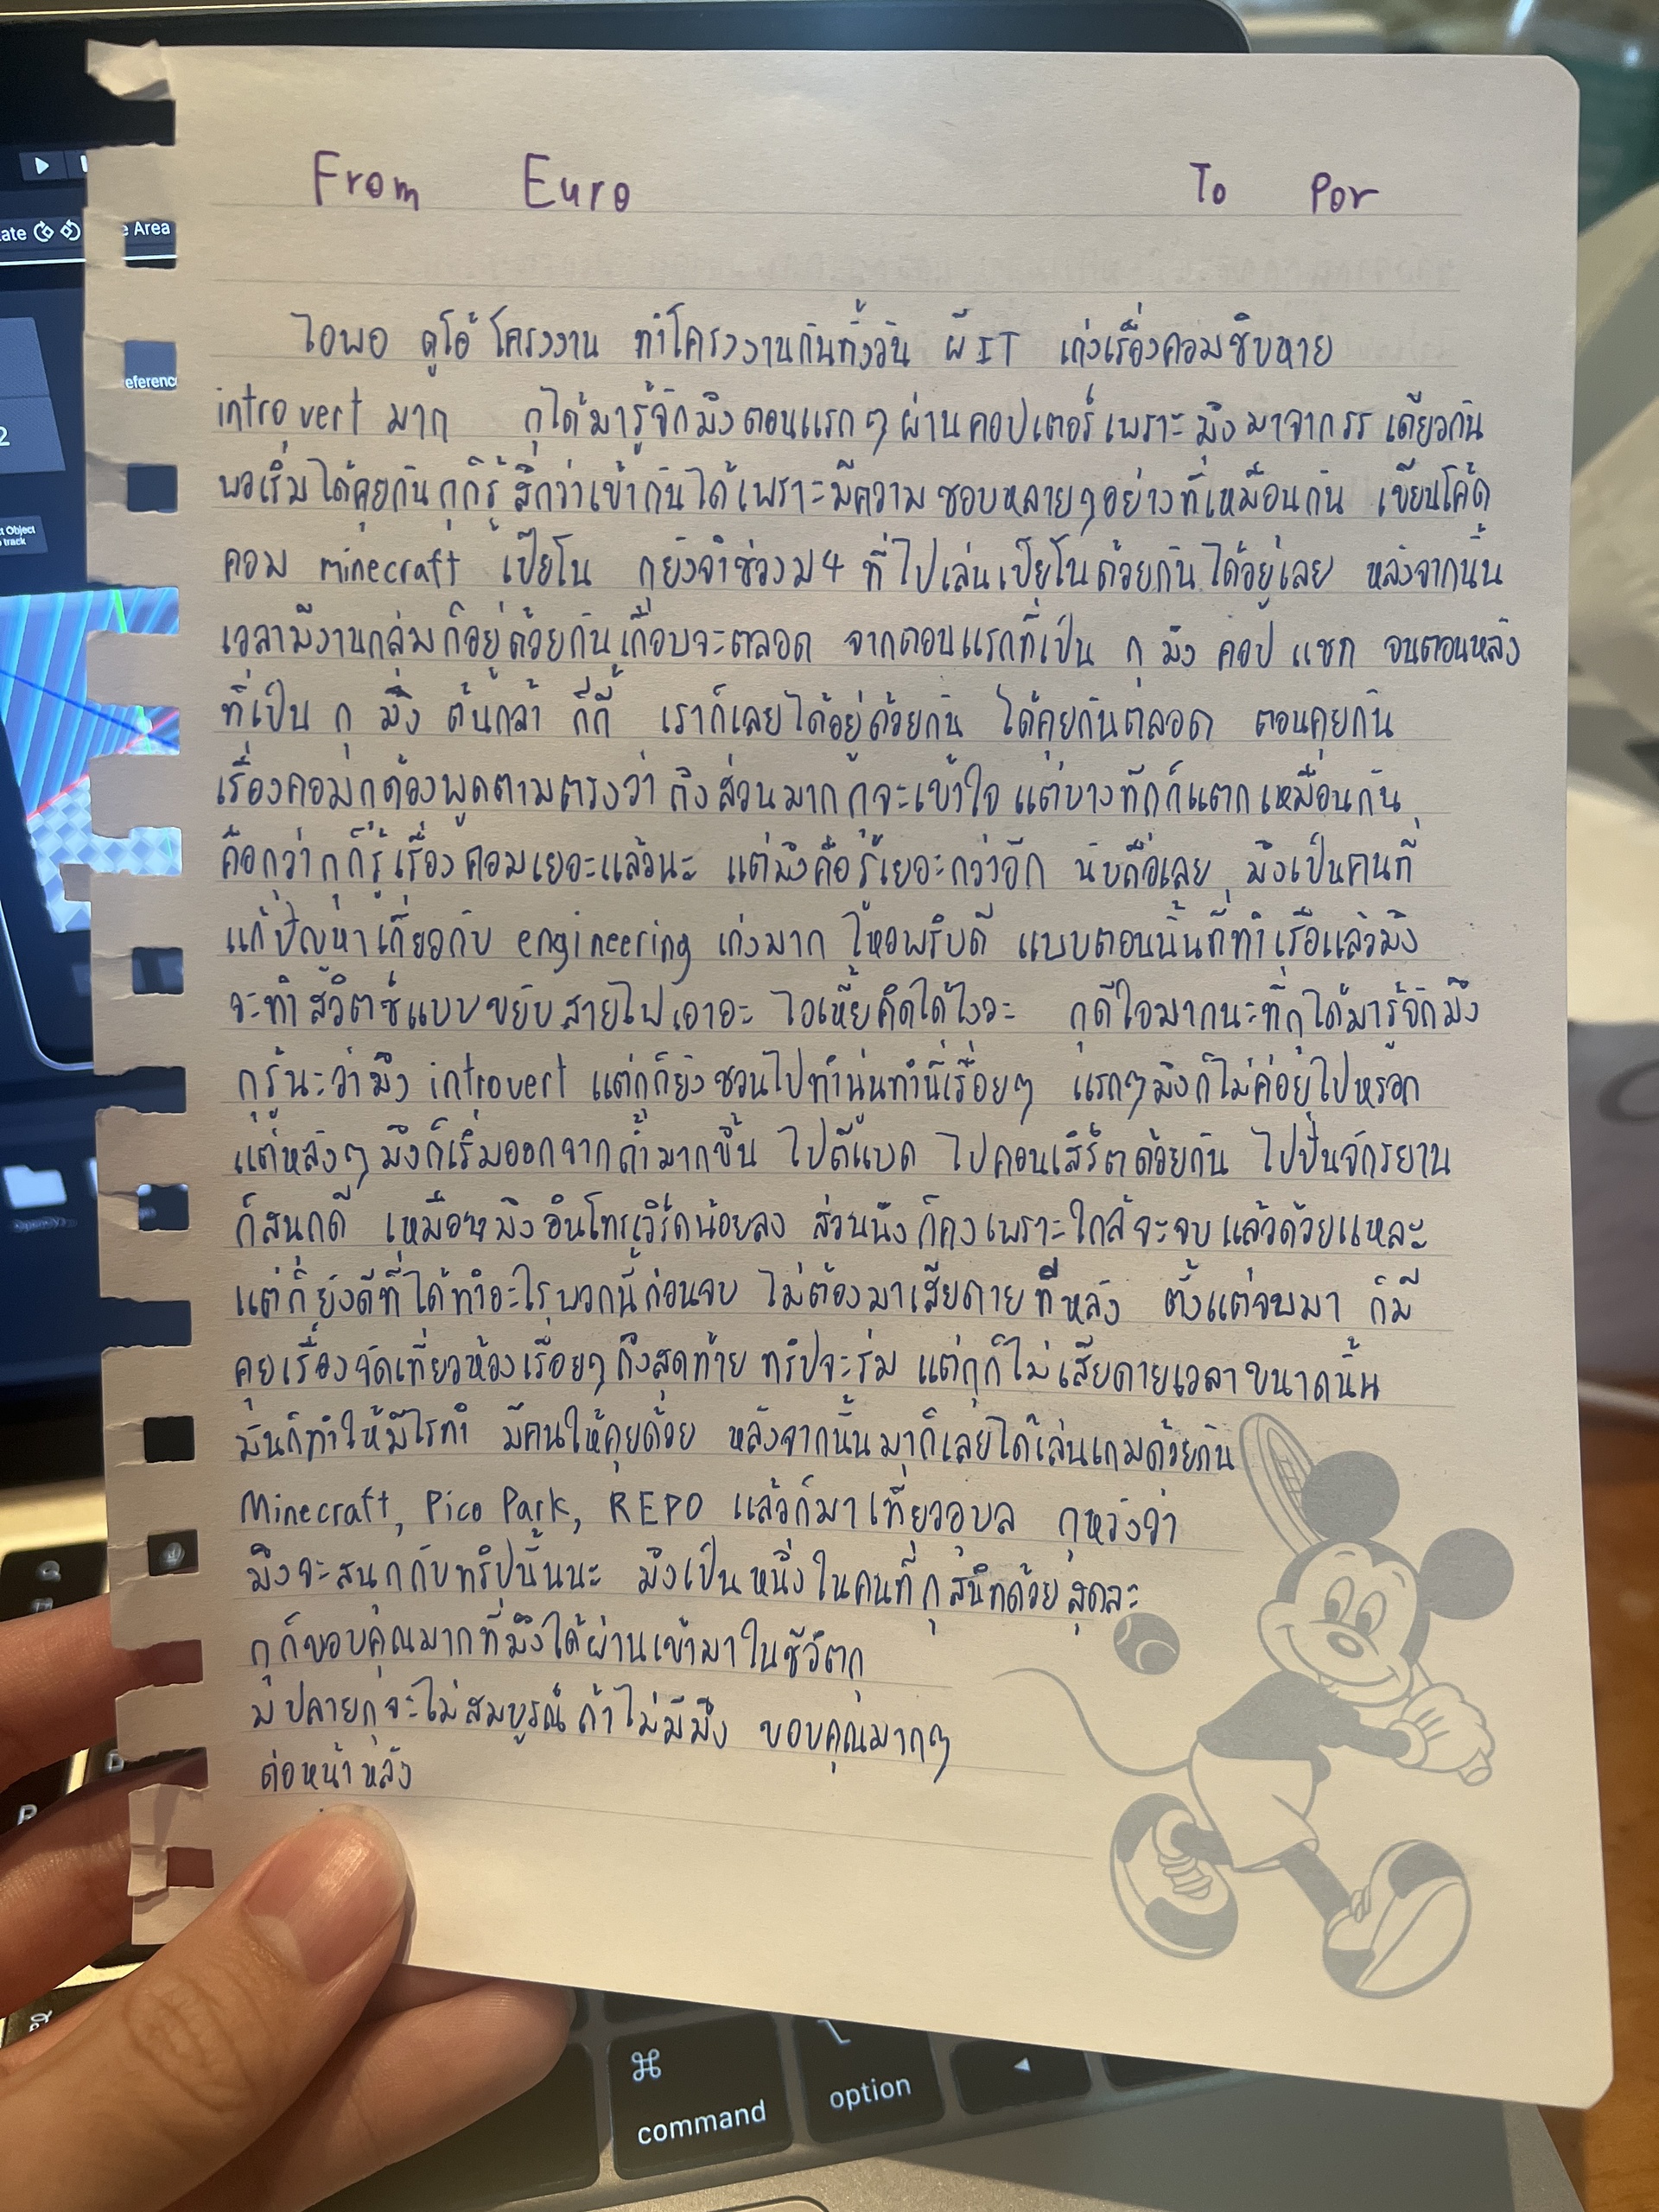 From Euro To Por
ไอพอ ดูโอ้โครงงาน ทำโครงงานกันทั้งวัน ผีIT เก่งเรื่องคอมชิบหาย
introvert มาก กูได้มารู้จักมึงตอนแรกๆผ่านคอปเตอร์เพราะมึงมาจากรร เดียวกัน
พอเริ่มได้คุยกันกูก็รู้สึกว่าเข้ากันได้เพราะมีความชอบหลายๆอย่างที่เหมือนกัน เขียนโค้ด
คอม minecraft เปียโน กูยังจำช่วงม4 ที่ไปเล่นเปียโนด้วยกันได้อยู่เลย หลังจากนั้น
เวลามีงานกลุ่มก็อยู่ด้วยกันเกือบจะตลอด จากตอนแรกที่เป็น กู มึง คอป แชก จนตอนหลัง
ที่เป็น กู มึง ต้นกล้า กีกี้ เราก็เลยได้อยู่ด้วยกัน ได้คุยกันตลอด ตอนคุยกัน
เรื่องคอมกูต้องพูดตามตรงว่า ถึงส่วนมากกูจะเข้าใจ แต่บางทีกูก็แตกเหมือนกัน
คือกูว่ากูก็รู้เรื่องคอมเยอะแล้วนะ แต่มึงคือรู้เยอะกว่าอีก นับถือเลย มึงเป็นคนที่
แก้ปัญหาเกี่ยวกับ engineering เก่งมาก ไหวพริบดี แบบตอนนั้นที่ทำเรือแล้วมึง
จะทำสวิตช์แบบขยับสายไฟเอาอะ ไอเหี้ยคิดได้ไงวะ กูดีใจมากนะที่กูได้มารู้จักมึง
กูรู้นะว่ามึง introvert แต่กูก็ยังชวนไปทำนู่นทำนี่เรื่อยๆ แรกๆมึงก็ไม่ค่อยไปหรอก
แต่หลังๆมึงก็เริ่มออกจากถ้ำมากขึ้น ไปตีแบด ไปคอนเสิร์ตด้วยกัน ไปปั่นจักรยาน
ก็สนุกดี เหมือนมึงอินโทรเวิร์ดน้อยลง ส่วนนึงก็คงเพราะใกล้จะจบแล้วด้วยแหละ
แต่ก็ยังดีที่ได้ทำอะไรพวกนี้ก่อนจบ ไม่ต้องมาเสียดายทีหลัง ตั้งแต่จบมา ก็มี
คุยเรื่องจัดเที่ยวห้องเรื่อยๆถึงสุดท้าย ทริปจะร่ม แต่กูก็ไม่เสียดายเวลาขนาดนั้น
มันก็ทำให้มีไรทำ มีคนให้คุยด้วย หลังจากนั้นมาก็เลยได้เล่นเกมด้วยกัน
Minecraft, Pico Park, REPO แล้วก็มาเที่ยวอุบล กูหวังว่า
มึงจะสนุกกับทริปนั้นนะ มึงเป็นหนึ่งในคนที่กูสนิทด้วยสุดละ
กูก็ขอบคุณมากที่มึงได้ผ่านเข้ามาในชีวิตกู
มปลายกูจะไม่สมบูรณ์ถ้าไม่มีมึง ขอบคุณมากๆ
ต่อหน้าหลัง
command
option